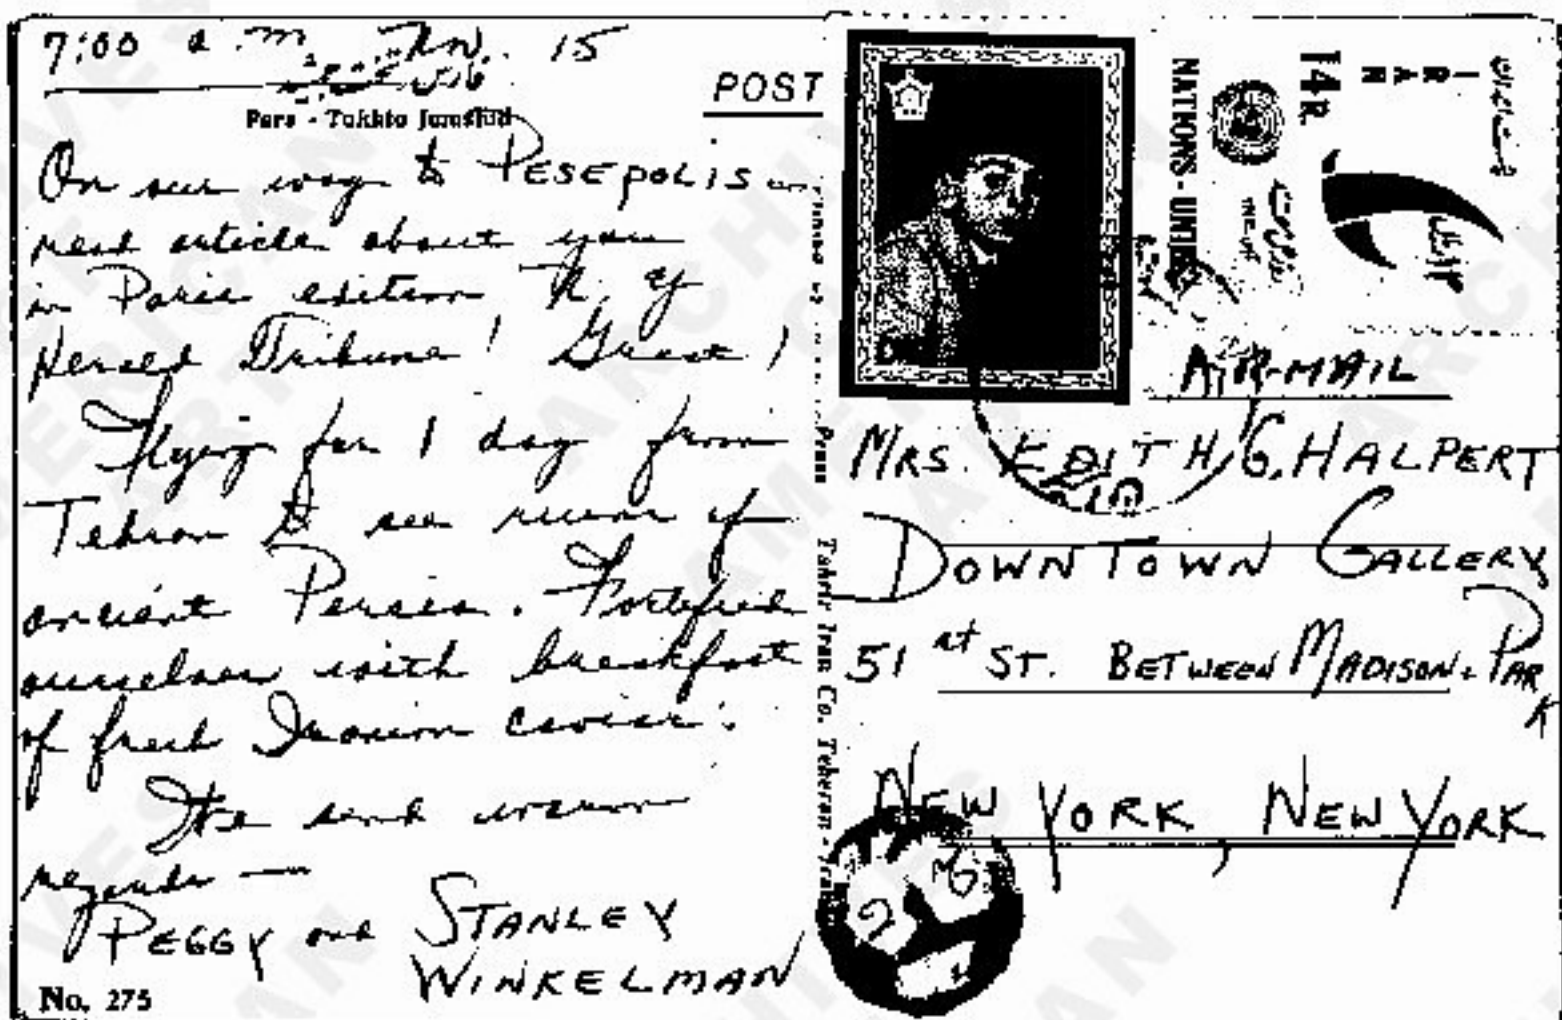 7:00 a.m. Nov. 15
Pars - Takhte Jamshid
On our way to PESEPOLIS -
read article about you
in Paris edition N.Y.
Herald Tribune! Great!
Flying for 1 day from
Tehran to see ruins of
ancient Persia. Fortified
ourselves with breakfast
of fresh Iranian caviar.
We send warm
regards —
PEGGY and STANLEY
WINKELMAN
No. 275
Press
Tahrir Iran Co. Teheran - Iran
POST
IRAN
14R.
NATIONS - UNIES
AIR-MAIL
MRS EDITH G. HALPERT
DOWNTOWN GALLERY
51 st ST. BETWEEN MADISON + PARK
NEW YORK, NEW YORK